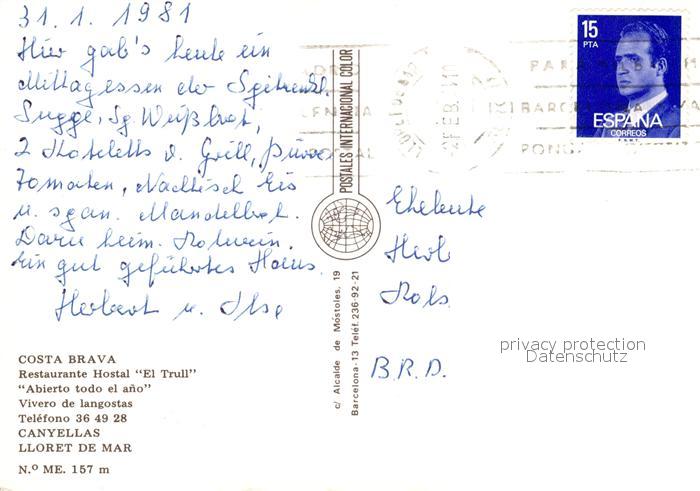 31. 1. 1981
Hier gab's heute ein
Mittagessen der
Suppe, Sg. Weißbrot,
2 Koteletts v. Grill, Püree
Tomaten, Nachtisch Eis
u. span. Mandelbrot.
Dazu heim. Rotwein.
Ein gut geführtes Haus.
Herbert u. Ilse
COSTA BRAVA
Restaurante Hostal "El Trull"
"Abierto todo el año"
Vivero de langostas
Teléfono 36 49 28
CANYELLAS
LLORET DE MAR
N.º ME. 157 m
POSTALES INTERNACIONAL COLOR
c/ Alcalde de Móstoles, 19
Barcelona-13 Teléf. 236-92-21
15
PTA
ESPAÑA
CORREOS
F.N.M.T.
FEB.
BARCELONA
Eheleute
B.R.D.
privacy protection
Datenschutz